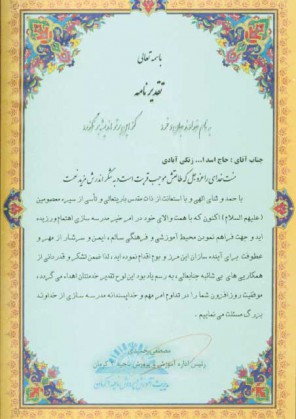 باسمه تعالی
تقدیر نامه
جناب آقای : حاج اسدا... زنگی آبادی
منت خدای را عزوجل که طاعتش موجب قربت است و به شکر اندرش مزید نعمت
با حمد و ثنای الهی و با استعانت از ذات مقدس باریتعالی و تأسی از سیره معصومین
(علیهم السلام) اکنون که با همت والای خود در امر خیر مدرسه سازی اهتمام ورزیده
اید و جهت فراهم نمودن محیط آموزشی و فرهنگی سالم ، ایمن و سرشار از مهر و
عطوفت برای آینده سازان این مرز و بوم اقدام نموده اید ، لذا ضمن تشکر و قدردانی از
همکاریهای بی شائبه جنابعالی ، به رسم یاد بود این لوح تقدیر خدمتتان اهداء می گردد .
موفقیت روز افزون شما را در تداوم امر مهم و خداپسندانه مدرسه سازی از خداوند
بزرگ مسئلت می نماییم .
رئیس اداره آموزش و پرورش ناحیه کرمان